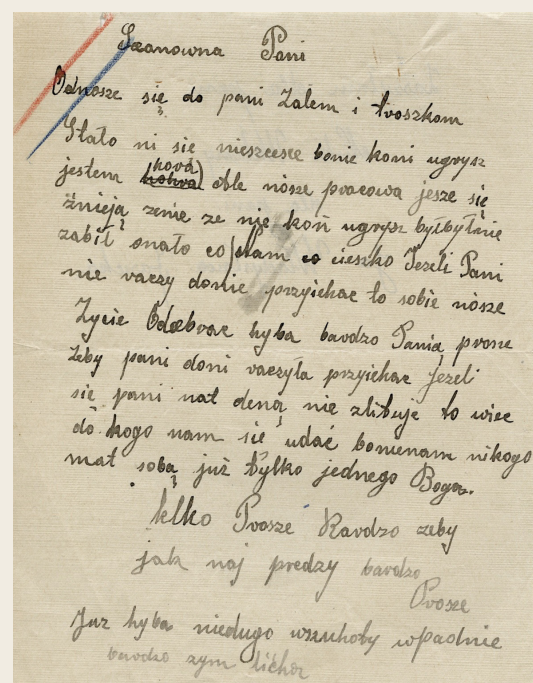 Szanowna Pani
Odnosze się do pani Zalem i troszkom
Stało ni sie nieszcesce bonie koni ugrysz
jestem hova oble nósze pracowa jesze się
żnieją zemie ze nie koń ugrysz byłbyłnie
zabił onało co mam co cieszko Jezeli Pani
nie raczy donie przyiehac to sobie nósze
Zycie Odebrac hyba bardzo Panią prosze
zeby pani doni raczyła przyiehac Jezeli
się pani nat deną nie zlituje to wiec
do kogo nam się udać bomenam nikogo
mat sobą już tylko jednego Boga.
telko Prosze Bardzo zeby
jak naj predzy bardzo
Prosze
Juz hyba niedugo wsuhoty wpadnie
bardzo zym lichor